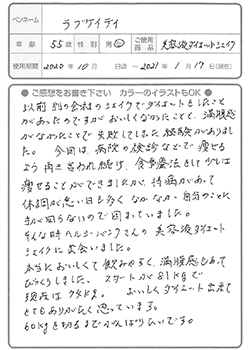 ペンネーム ラブケイティ
年齢 55歳 性別 男・女 ご使用商品 美容液ダイエットシェイク
使用期間 2020年10月 日頃 ~ 2021年1月17日(現在)
●ご感想をお書き下さい カラーのイラストもOK●
以前別の会社のシェイクでダイエットをしたこと
があったのですがおいしくなかったことと、満腹感
がなかったことで失敗してしまた経験がありま
す。今回は、病院の検診などで痩せる
よう再三言われ続け、食事療法をして少しは
痩せることができましたが、持病があって
体調が悪い日も多くなかなか自分のことに
手が回らないので困っていました。
そんな時ヘルシーバンクさんの美容液ダイエット
シェイクに出会いました。
本当においしくて飲みやすく、満腹感もあって
びっくりしました。スタートが81kgで
現在は74kg。おいしくダイエット出来て
とてもありがたく思っています。
60kgを切るまでがんばりたいです。